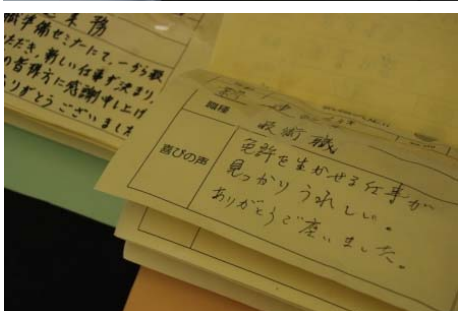 業務
職準備セミナーにて、一から教
ただき、新しい仕事が決まり、
の皆様方に感謝申し上げ
りがとうございました
職種
技術職
喜びの声
免許を生かせる仕事が
見つかりうれしい。
ありがとうご座いました。